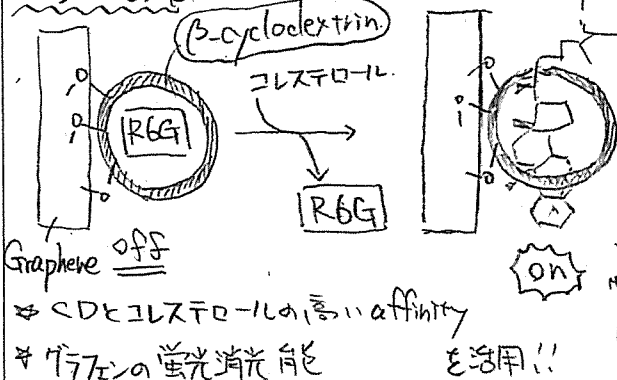 β-cyclodextrin
コレステロール
R6G
R6G
Graphene off
on
☆ CDとコレステロールの高い affinity
* グラフェンの蛍光消光能 を活用!!